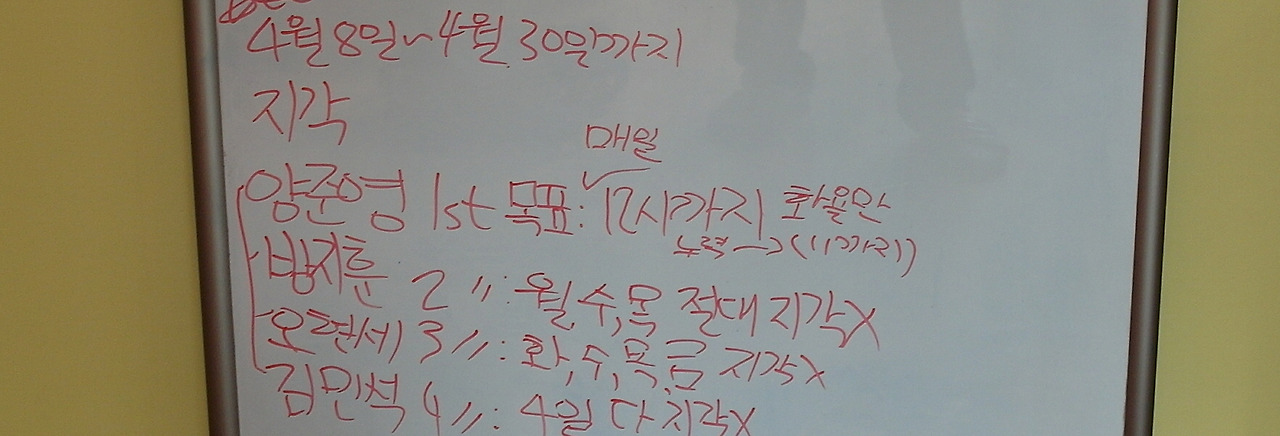 4월 8일~4월 30일까지
지각
매일
양준영 1st 목표: 12시까지 화욜만
노력→(11까지)
방지훈 2 〃: 월,수,목 절대 지각X
오현세 3 〃: 화,수,목,금 지각X
김민석 4 〃: 4일 다 지각X